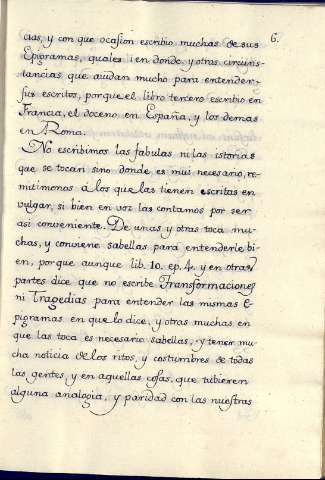 6.
cias, y con que ocasion escribio muchas de sus
Epigramas, quales, i en donde, y otras circuns-
tancias que aiudan mucho para entender
sus escritos, porque el libro tercero escribio en
Francia, el doceno en España, y los demas
en Roma.
No escribimos las fabulas ni las istorias
que se tocan sino donde es mui necesario, re-
mitimonos á los que las tienen escritas en
vulgar, si bien en voz las contamos por ser
asi conveniente. De unas y otras toca mu-
chas, y conviene sabellas para entenderle bi-
en, porque aunque lib. 10. ep. 4. y en otras
partes dice que no escribe Transformaciones
ni Tragedias para entender las mismas E-
pigramas en que lo dice, y otras muchas en
que las toca es necesario sabellas, y tener mu-
cha noticia de los ritos, y costumbres de todas
las gentes, y en aquellas cosas, que tubieren
alguna analogia, y paridad con las nuestras